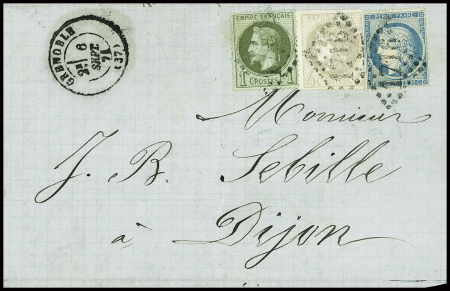 GRENOBLE (37)
2E
6
SEPT
71
EMPIRE FRANÇAIS
1 C POSTES 1
REPUB
REPUB. FRANC.
Monsieur
J. B. Sebille
à Dijon